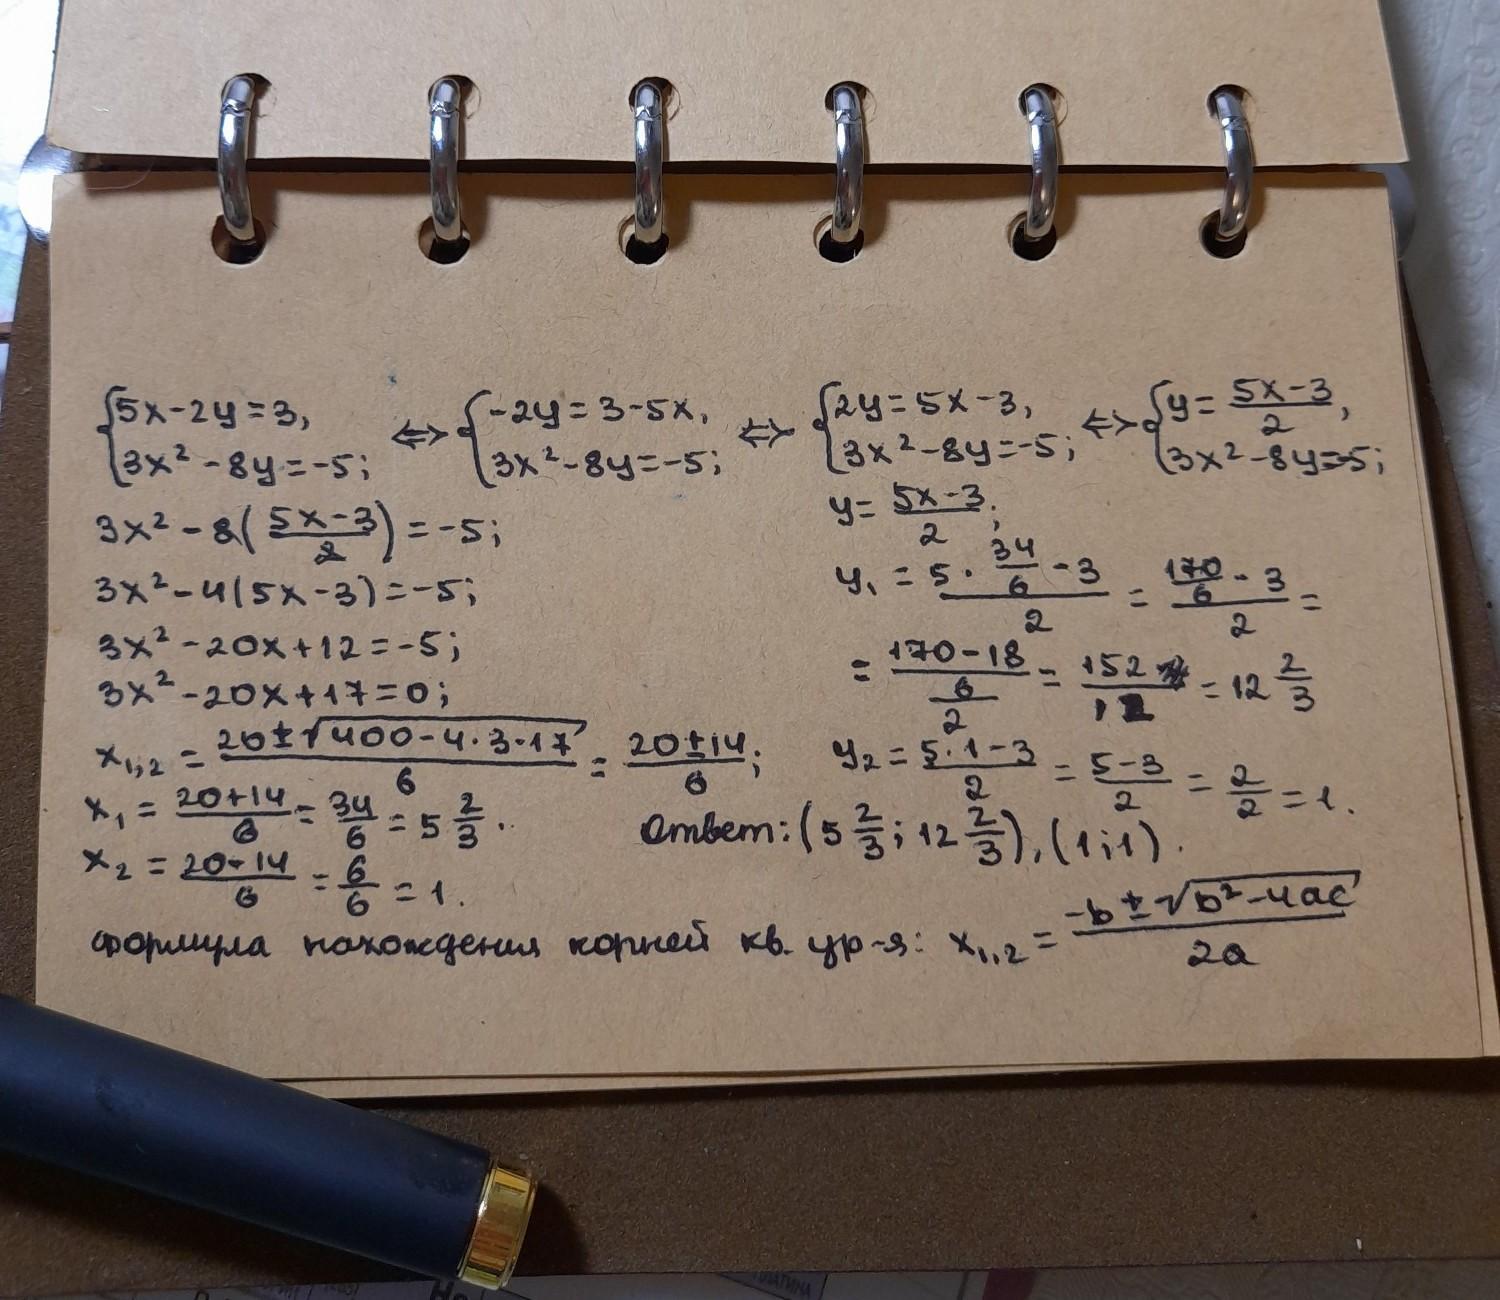 {5x-2y=3, 3x²-8y=-5; <=> {-2y=3-5x, 3x²-8y=-5; <=> {2y=5x-3, 3x²-8y=-5; <=> {y=(5x-3)/2, 3x²-8y=-5;
3x²-8((5x-3)/2)=-5;
3x²-4(5x-3)=-5;
3x²-20x+12=-5;
3x²-20x+17=0;
x₁,₂=(20±√(400-4·3·17))/6=(20±14)/6;
x₁=(20+14)/6=34/6=5 2/3.
x₂=(20-14)/6=6/6=1.
y=(5x-3)/2;
y₁=(5·34/6-3)/2=(170/6-3)/2=
=((170-18)/6)/2=152/12=12 2/3
y₂=(5·1-3)/2=(5-3)/2=2/2=1.
Ответ: (5 2/3; 12 2/3), (1;1).
формула нахождения корней кв. ур-я: x₁,₂=(-b±√(b²-4ac))/2a
ПЛАТИНА